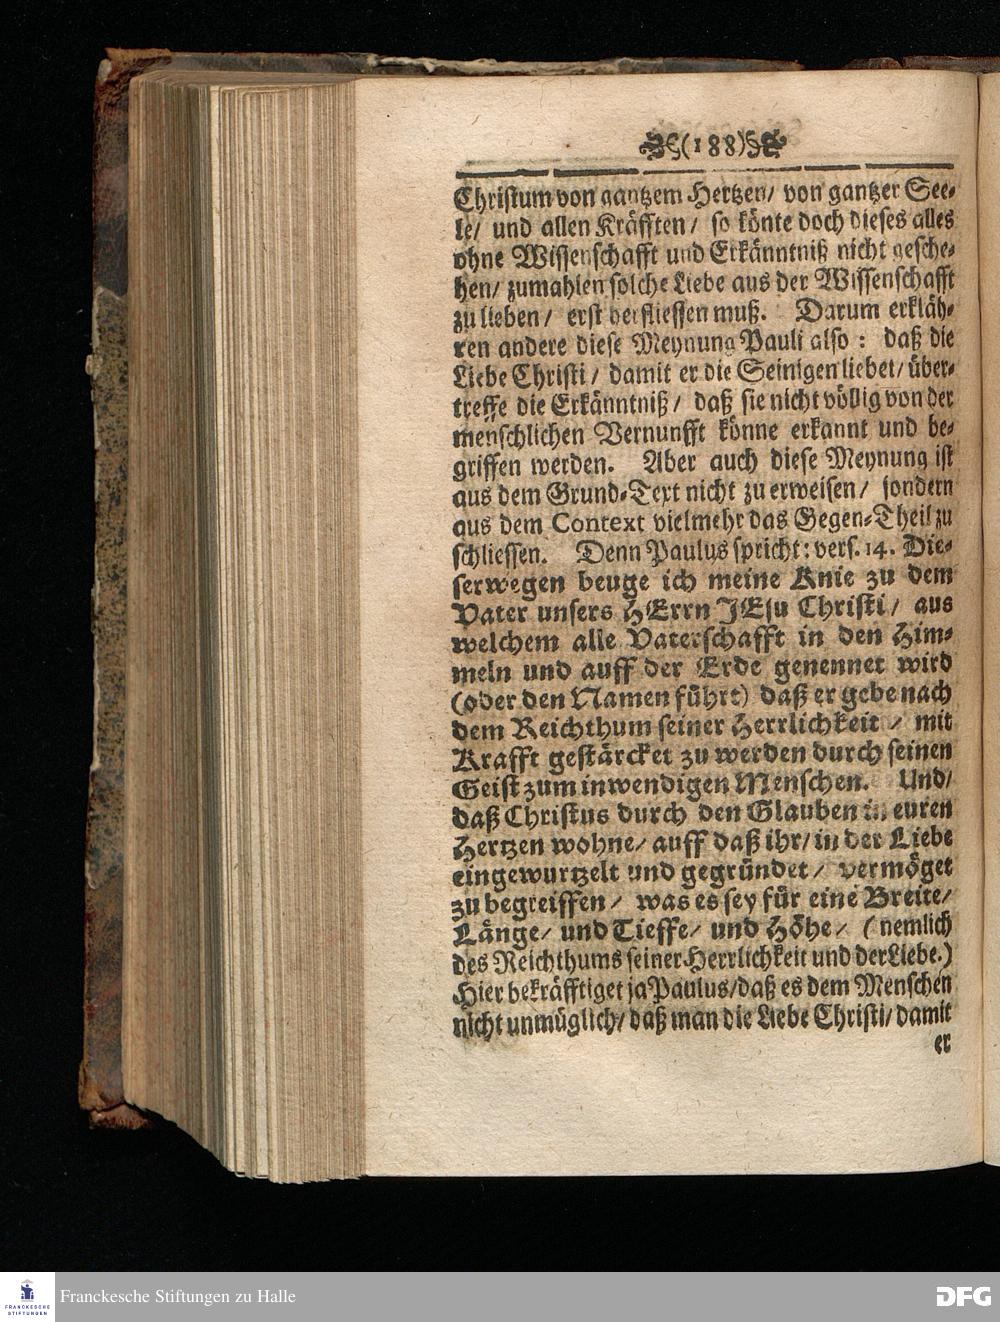 (188)
Christum von gantzem Hertzen/ von gantzer See-
le/ und allen Kräfften/ so könte doch dieses alles
ohne Wissenschafft und Erkänntniß nicht gesche-
hen/ zumahlen solche Liebe aus der Wissenschafft
zu lieben/ erst herfliessen muß. Darum erkläh-
ren andere diese Meynung Pauli also: daß die
Liebe Christi/ damit er die Seinigen liebet/ über-
treffe die Erkänntniß/ daß sie nicht völlig von der
menschlichen Vernunfft könne erkannt und be-
griffen werden. Aber auch diese Meynung ist
aus dem Grund-Text nicht zu erweisen/ sondern
aus dem Context vielmehr das Gegen-Theil zu
schliessen. Denn Paulus spricht: vers. 14. Die-
serwegen beuge ich meine Knie zu dem
Vater unsers HErrn JEsu Christi/ aus
welchem alle Vaterschafft in den Him-
meln und auff der Erde genennet wird
(oder den Namen führt) daß er gebe nach
dem Reichthum seiner Herrlichkeit/ mit
Krafft gestärcket zu werden durch seinen
Geist zum inwendigen Menschen. Und/
daß Christus durch den Glauben in euren
Hertzen wohne/ auff daß ihr/ in der Liebe
eingewurtzelt und gegründet/ vermöget
zu begreiffen/ was es sey für eine Breite/
Länge/ und Tieffe/ und Höhe/ (nemlich
des Reichthums seiner Herrlichkeit und der Liebe.)
Hier bekräfftiget ja Paulus/ daß es dem Menschen
nicht unmüglich/ daß man die Liebe Christi/ damit
er
FRANCKESCHE
STIFTUNGEN
Franckesche Stiftungen zu Halle
DFG